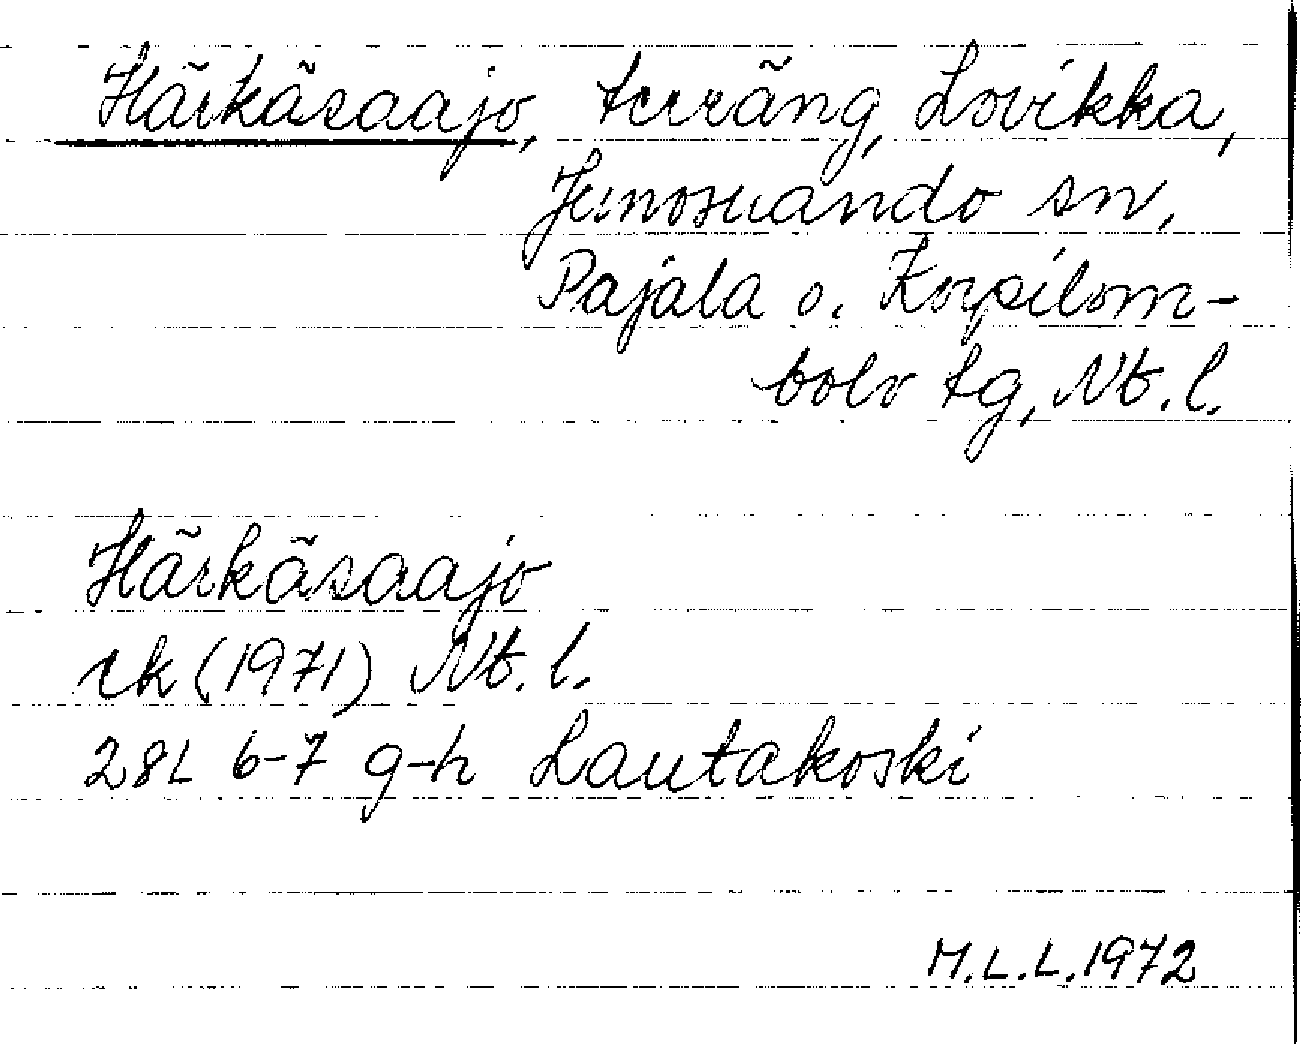 Härkäsaajo, terräng, Lovikka,
Junosuando sn,
Pajala o. Korpilom-
bolo tg, Nb. l.
Härkäsaajo
rk (1971) Nb. l.
28L 6-7 g-h Lautakoski
M.L.L. 1972